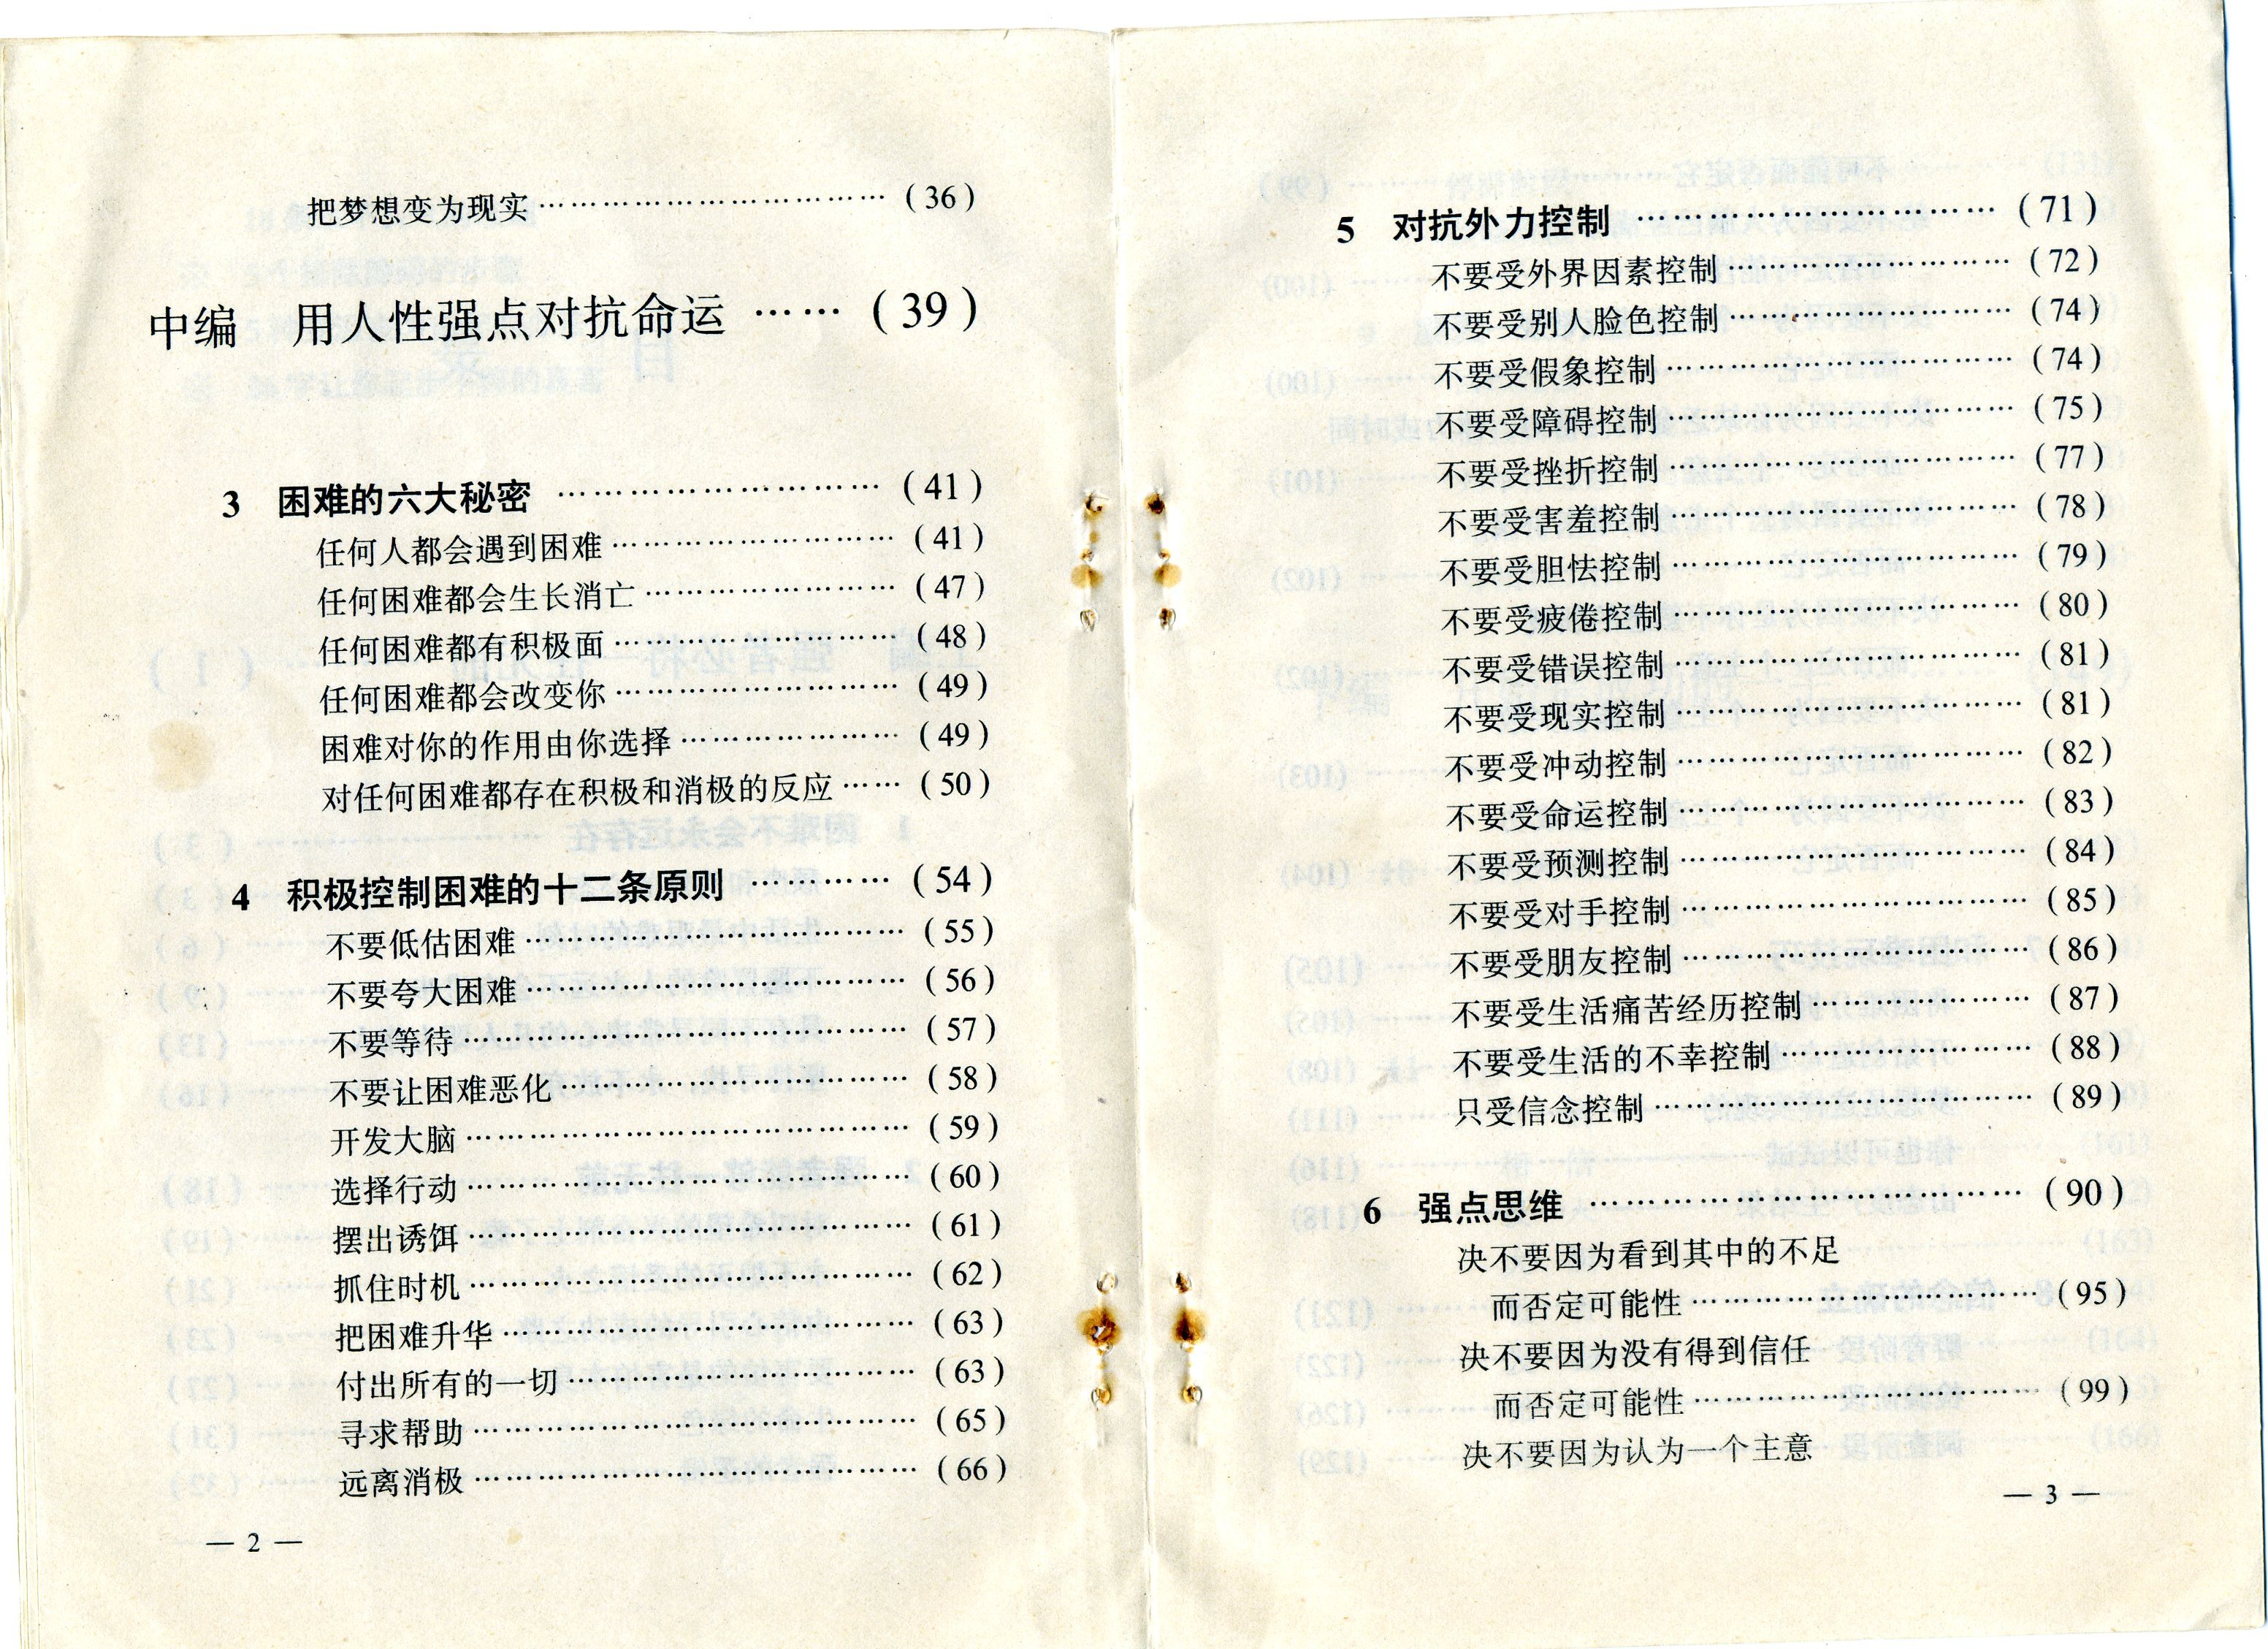 把梦想变为现实………………………………(36)
中编 用人性强点对抗命运……(39)
3 困难的六大秘密………………………(41)
任何人都会遇到困难………………………(41)
任何困难都会生长消亡……………………(47)
任何困难都有积极面………………………(48)
任何困难都会改变你………………………(49)
困难对你的作用由你选择…………………(49)
对任何困难都存在积极和消极的反应……(50)
4 积极控制困难的十二条原则…………(54)
不要低估困难………………………………(55)
不要夸大困难………………………………(56)
不要等待……………………………………(57)
不要让困难恶化……………………………(58)
开发大脑……………………………………(59)
选择行动……………………………………(60)
摆出诱饵……………………………………(61)
抓住时机……………………………………(62)
把困难升华…………………………………(63)
付出所有的一切……………………………(63)
寻求帮助……………………………………(65)
远离消极……………………………………(66)
— 2 —
5 对抗外力控制…………………………(71)
不要受外界因素控制………………………(72)
不要受别人脸色控制………………………(74)
不要受假象控制……………………………(74)
不要受障碍控制……………………………(75)
不要受挫折控制……………………………(77)
不要受害羞控制……………………………(78)
不要受胆怯控制……………………………(79)
不要受疲倦控制……………………………(80)
不要受错误控制……………………………(81)
不要受现实控制……………………………(81)
不要受冲动控制……………………………(82)
不要受命运控制……………………………(83)
不要受预测控制……………………………(84)
不要受对手控制……………………………(85)
不要受朋友控制……………………………(86)
不要受生活痛苦经历控制…………………(87)
不要受生活的不幸控制……………………(88)
只受信念控制………………………………(89)
6 强点思维………………………………(90)
决不要因为看到其中的不足
而否定可能性……………………………(95)
决不要因为没有得到信任
而否定可能性……………………………(99)
决不要因为认为一个主意
— 3 —